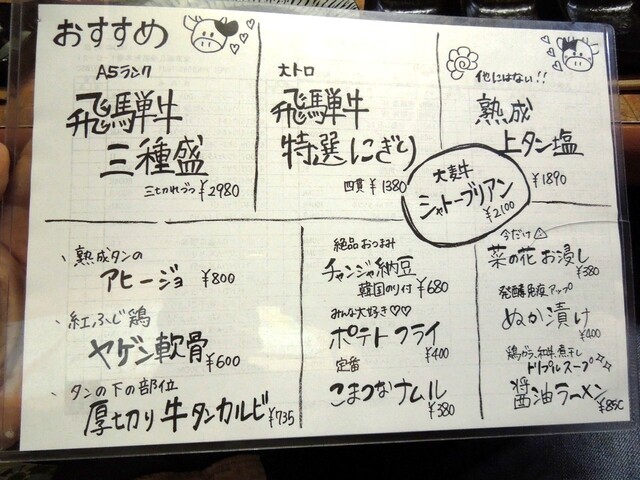 おすすめ
A5ランク
飛騨牛
三種盛
三切れづつ ¥2980
大トロ
飛騨牛
特選にぎり
四貫 ¥1380
他にはない!!
熟成
上タン塩
¥1890
大麦牛
シャトーブリアン
¥2100
熟成タンの
アヒージョ ¥800
紅ふじ鶏
ヤゲン軟骨 ¥600
タンの下の部位
厚切り牛タンカルビ ¥735
絶品おつまみ
チャンジャ納豆
韓国のり付 ¥680
みんな大好き♡♡
ポテトフライ
¥400
定番
こまつなナムル
¥380
今だけ⚠
菜の花お浸し
¥380
発酵免疫アップ
ぬか漬け
¥400
鶏ガラ、和牛、煮干し
トリプルスープ
醤油ラーメン ¥850